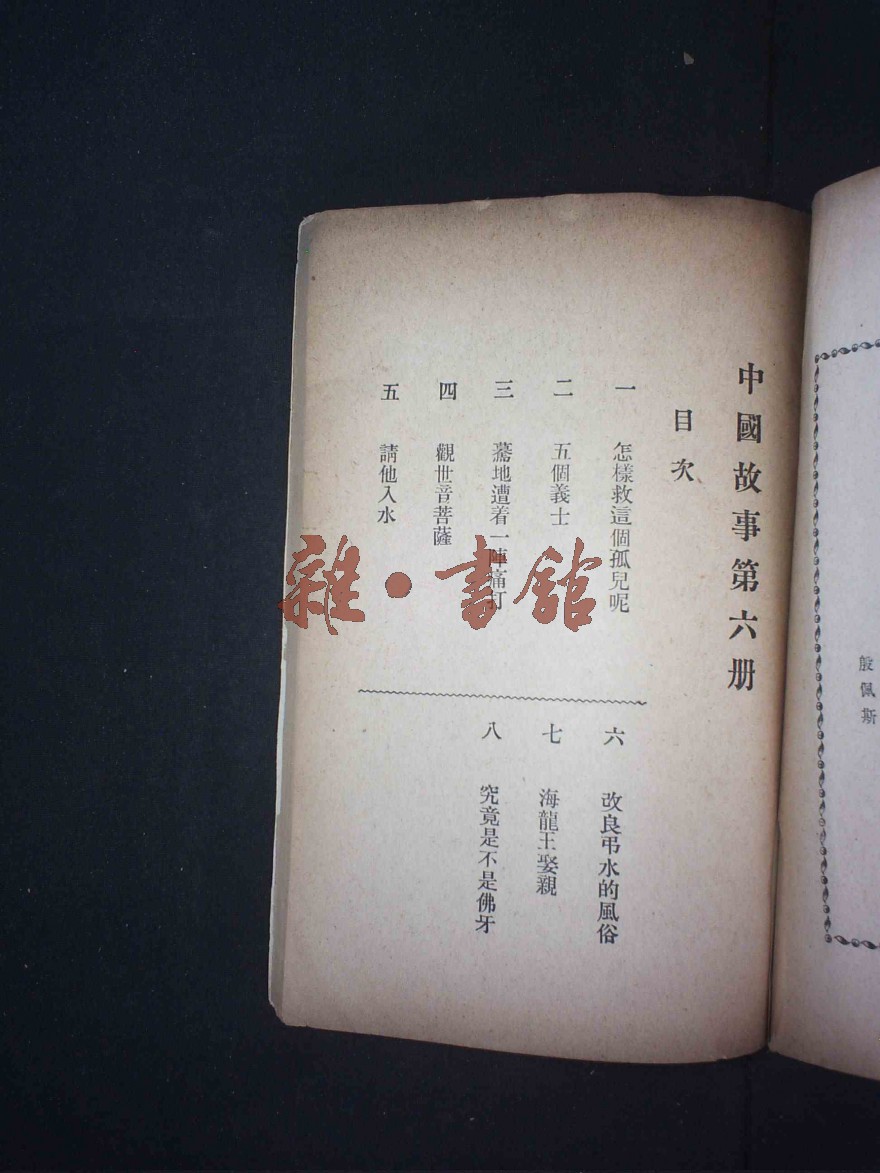 殷佩斯
中國故事第六册
目次
一 怎樣救這個孤兒呢
二 五個義士
三 驀地遭着一陣痛打
四 觀世音菩薩
五 請他入水
六 改良弔水的風俗
七 海龍王娶親
八 究竟是不是佛牙
雜·書館